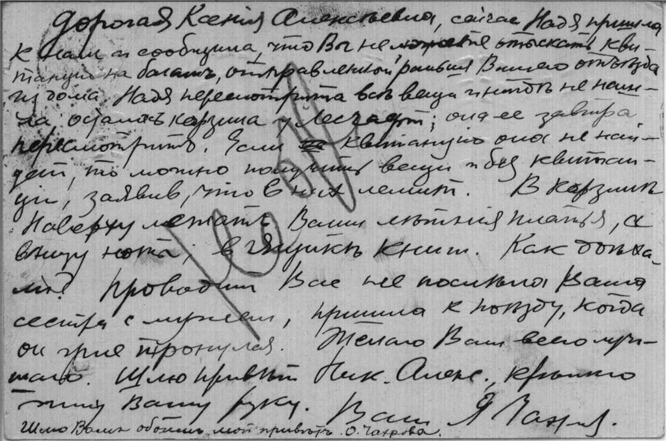 Дорогая Ксенія Алексѣевна, сейчас Надя пришла
к нам и сообщила, что Вы не можете отыскать кви-
танціи на багаж, отправленной раньше Вашего отъѣзда
из дома. Надя пересмотрѣла всѣ вещи и нигдѣ не наш-
ла, осталась корзина у ; она ее завтра
пересмотрит. Если квитанцію она не най-
дет, то можно получить вещи и без квитан-
ціи, заявив, что в них лежит. В корзинѣ
наверху лежат Ваши лѣтнія платья, а
внизу ноты; в ящикѣ книги. Как доѣха-
ли? Проводить Вас не поспѣла Ваша
сестра с мужем, пришла к поѣзду, когда
он уже тронулся. Желаю Вам всего луч-
шаго. Шлю привѣт Ник. Алекс., крѣпко
жму Вашу руку. Ваш Я
Шлю Вам обоим мой привѣтъ. О.